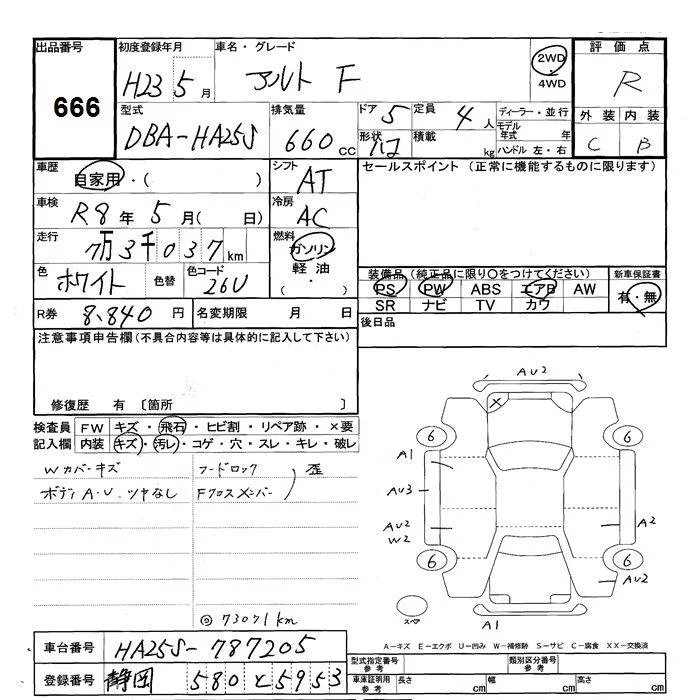 出品番号 初度登録年月 車名・グレード 2WD 評価点
666 H23 5月 アルト F 4WD R
型式 排気量 ドア 5 定員 4人 ディーラー・並行 外装 内装
DBA-HA25S 660cc 形状 積載 kg モデル年式 年 C B
ハンドル 左・右
車歴 自家用・( ) シフト AT セールスポイント (正常に機能するものに限ります)
車検 R8年 5月( 日) 冷房 AC
走行 7万3千037km 燃料 ガソリン
色 ホワイト 色替 色コード 26U 軽油 ( ・ )
装備品 (純正品に限り〇をつけてください) 新車保証書
PS PW ABS エアB AW 有・無
SR ナビ TV カワ
R券 8,840円 名変期限 月 日 後日品
注意事項申告欄(不具合内容等は具体的に記入して下さい)
修復歴 有 〔箇所 〕
検査員 FW キズ・飛石・ヒビ割・リペア跡・×要
記入欄 内装 キズ・汚レ・コゲ・穴・スレ・キレ・破レ
Wカバーキズ フードロック 歪
ボディA.U.ツヤなし Fクロスメンバー
◎73071km
AU2
X
6 6
A1
AU3
AU2 A2
W2
6 6
AU2
スペア A1
A-キズ E-エクボ U-凹み W-補修跡 S-サビ C-腐食 XX-交換済
車台番号 HA25S-787205
登録番号 静岡 580 と 5953
型式指定番号 参考 類別区分番号 参考
車庫証明用 参考 長さ cm 幅 cm 高さ cm